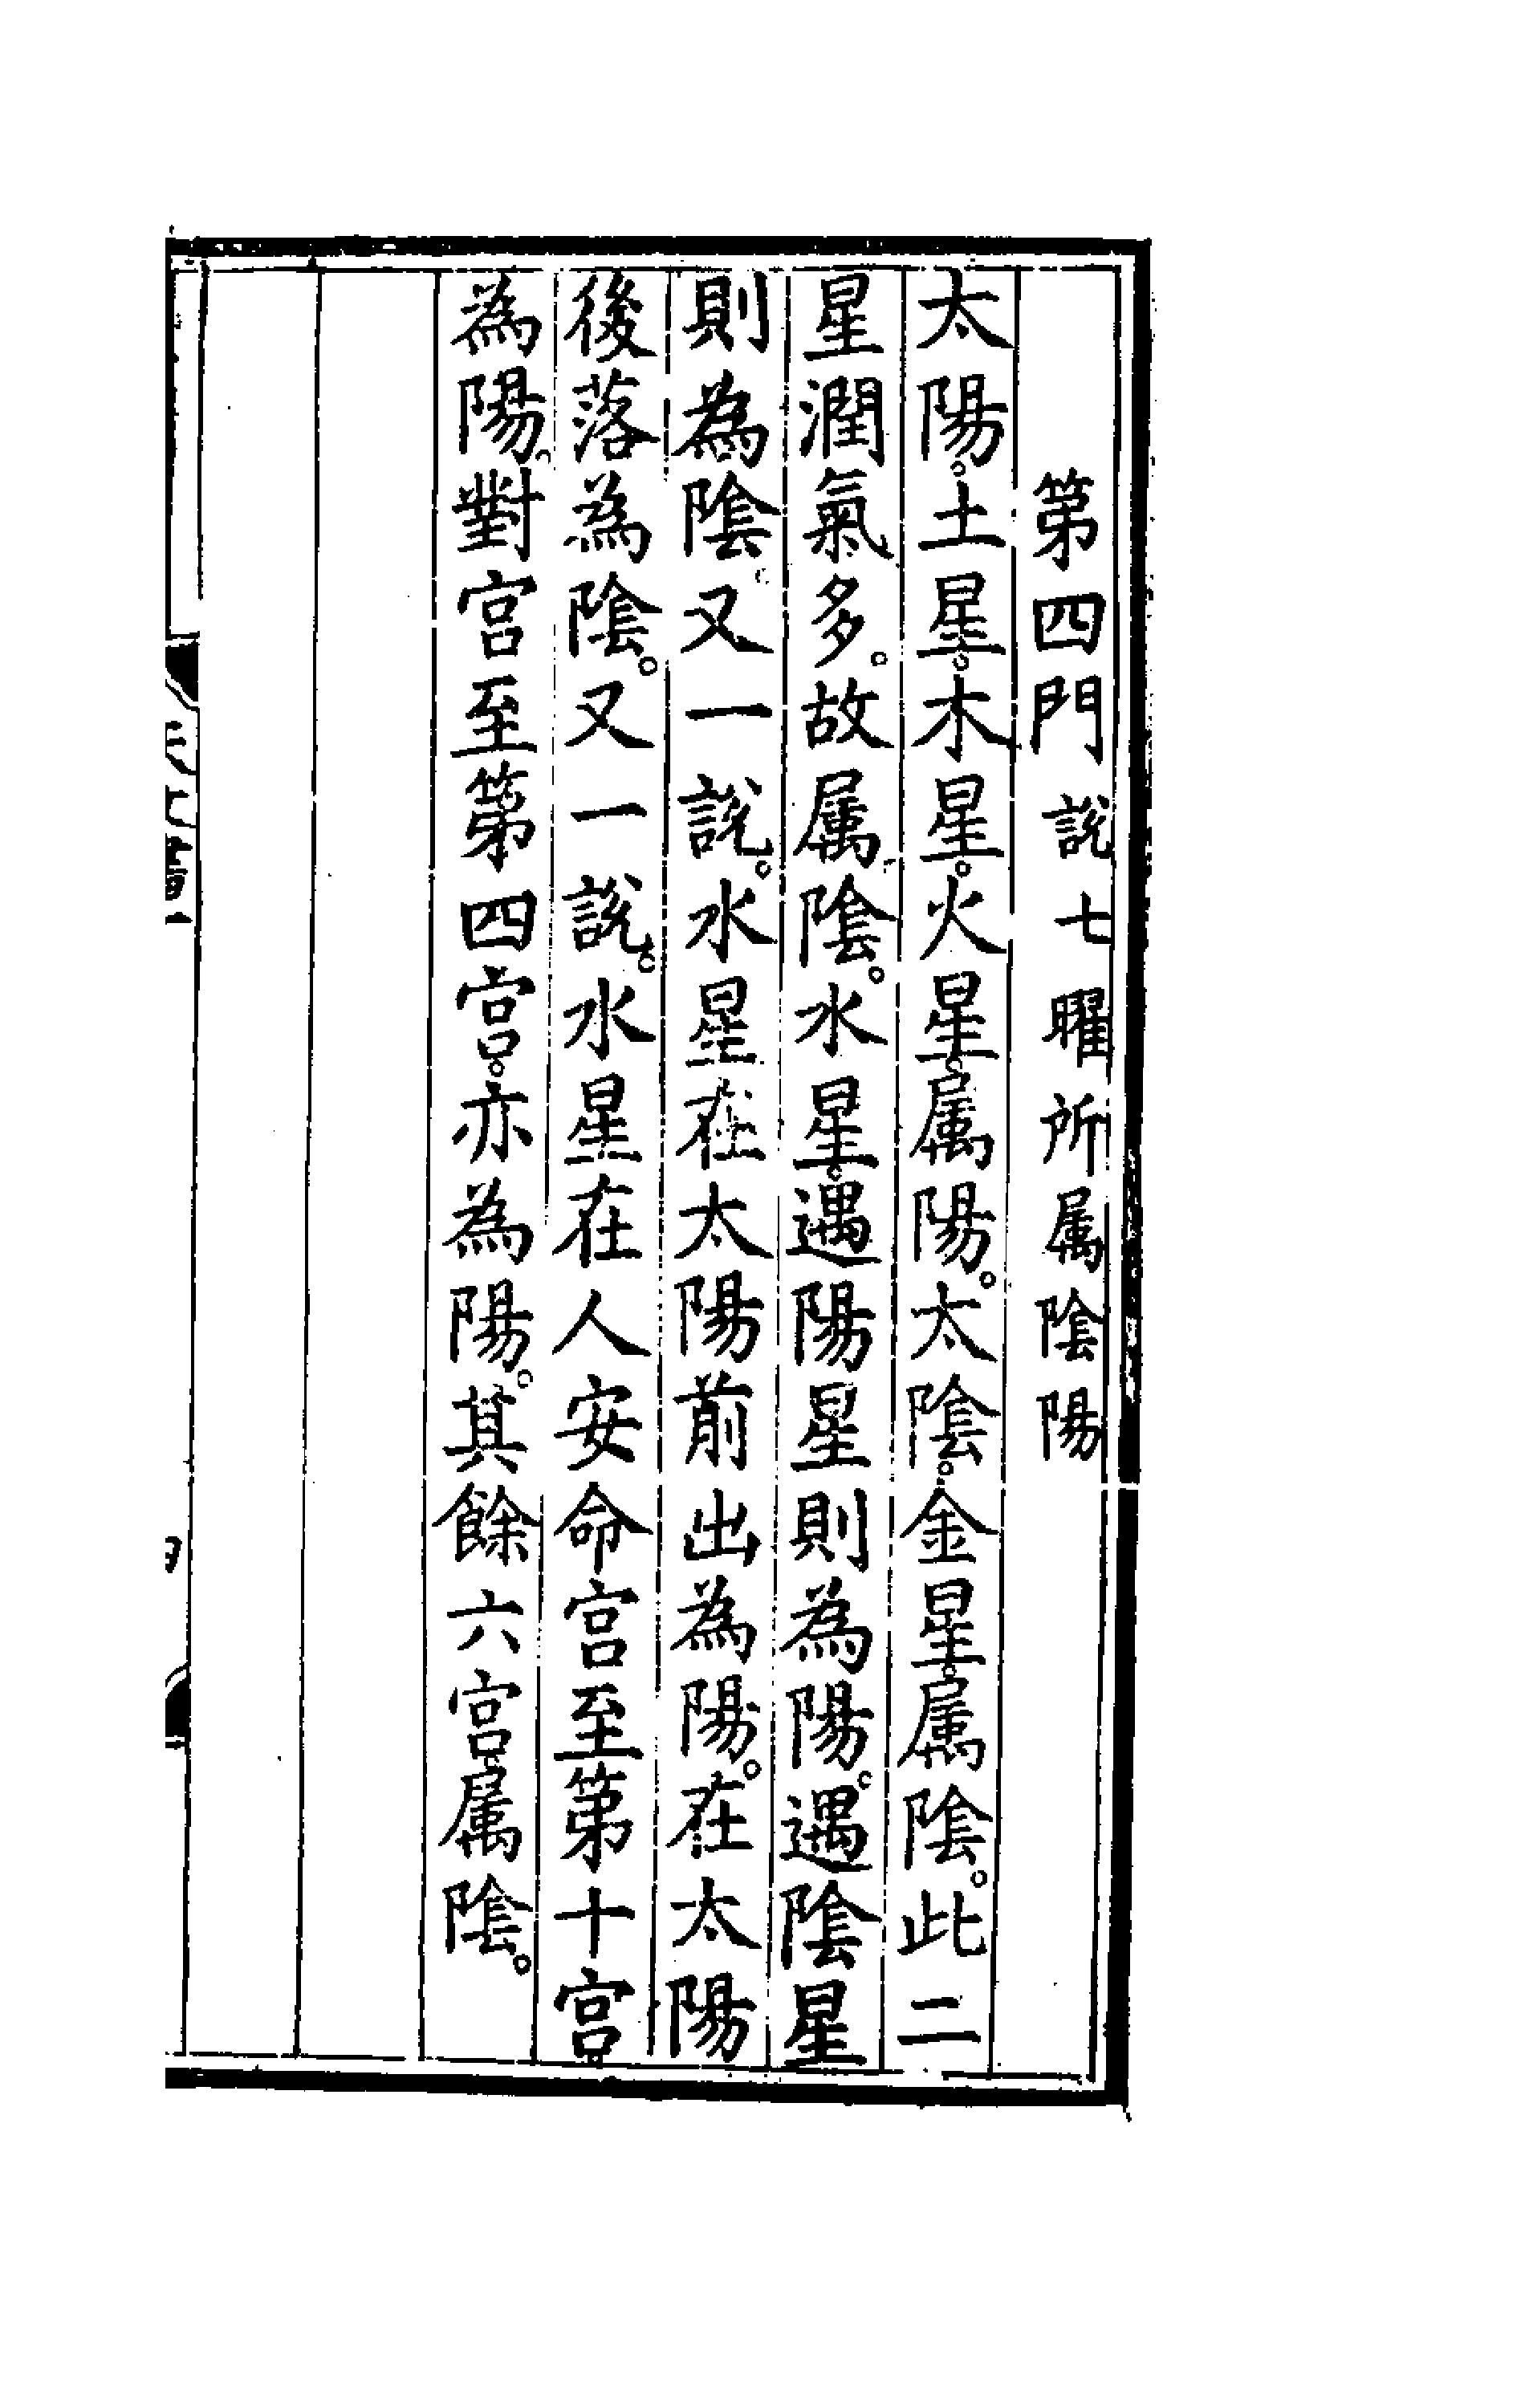 第四門 說七曜所属陰陽
太陽。土星。木星。火星。属陽。太陰。金星。属陰。此二
星潤氣多。故属陰。水星。遇陽星則為陽。遇陰星
則為陰。又一說。水星在太陽前出為陽。在太陽
後落為陰。又一說。水星在人安命宮至第十宮
為陽。對宮至第四宮。亦為陽。其餘六宮。属陰。